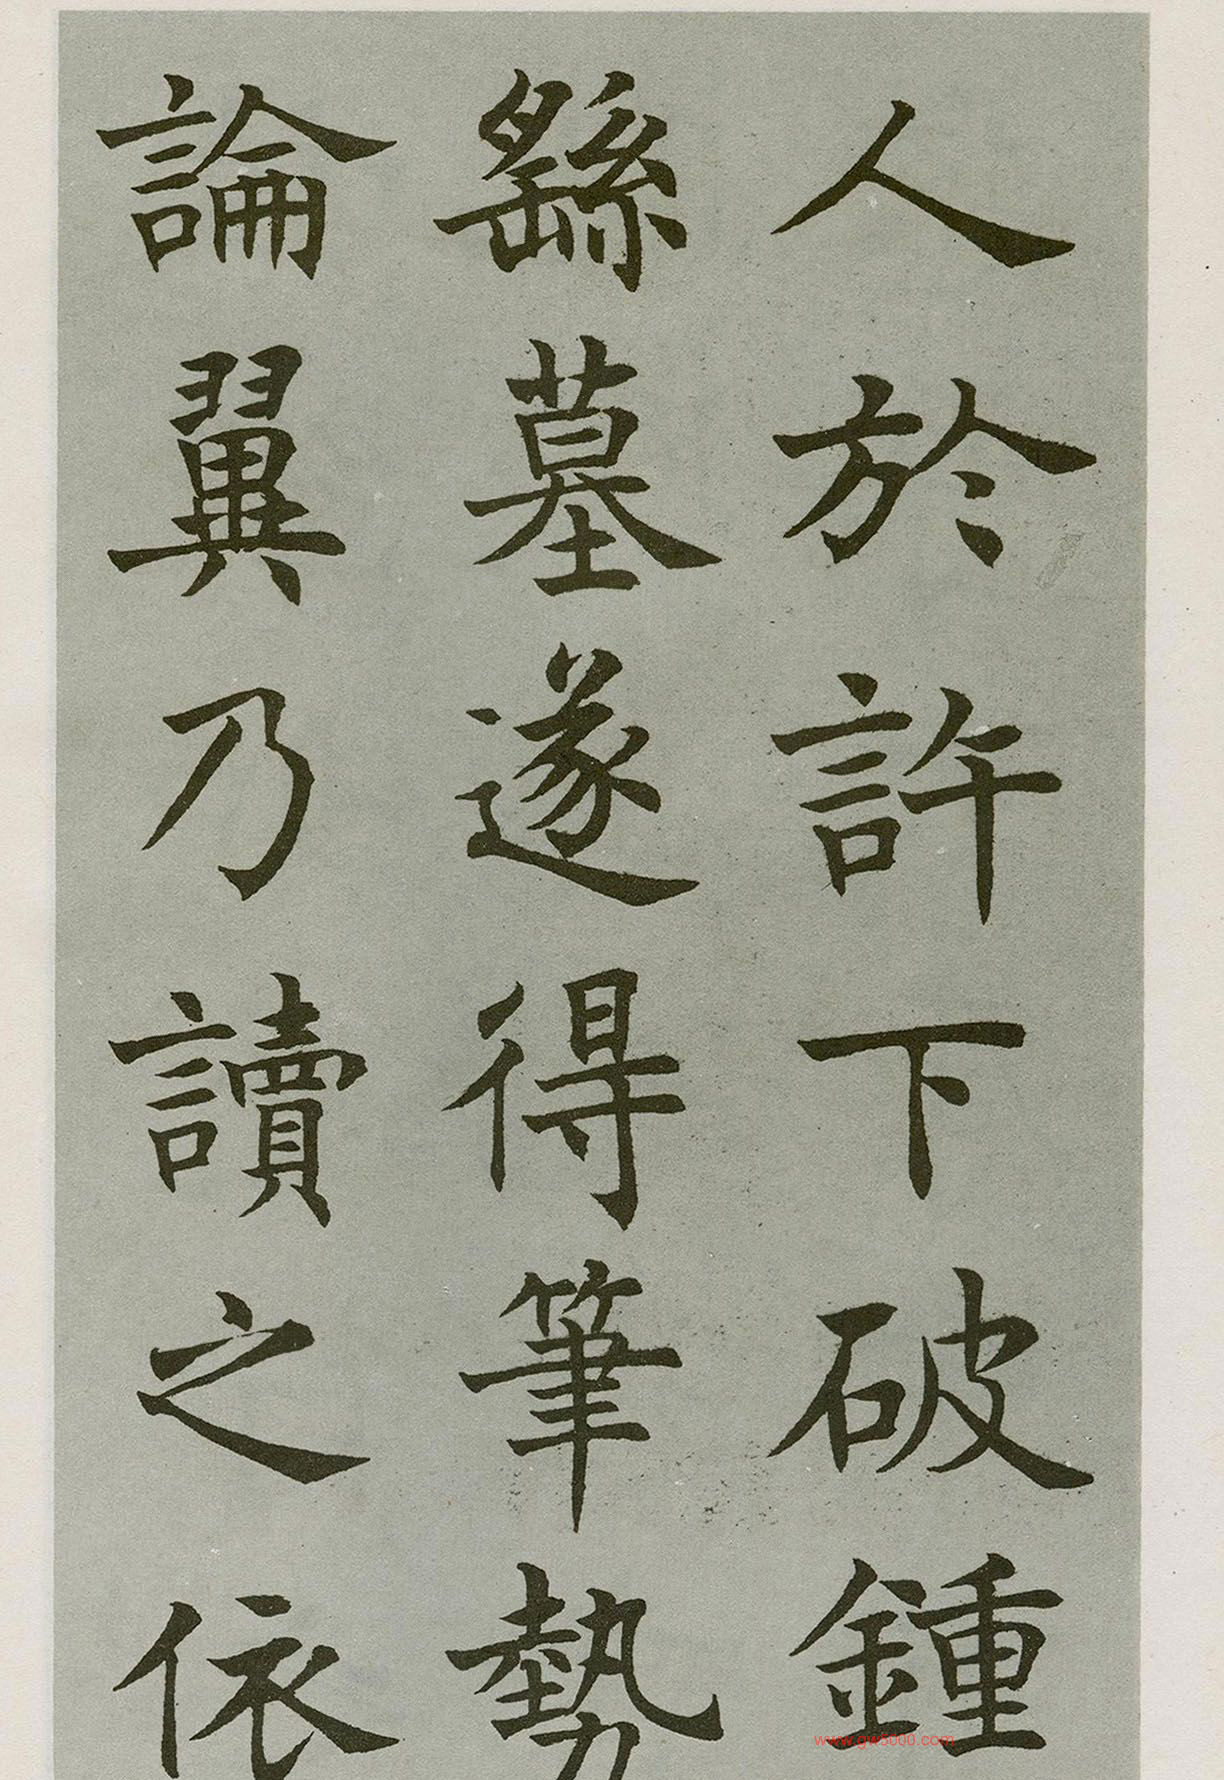 人於許下破鍾
繇墓遂得筆勢
論翼乃讀之依
www.gw5000.com